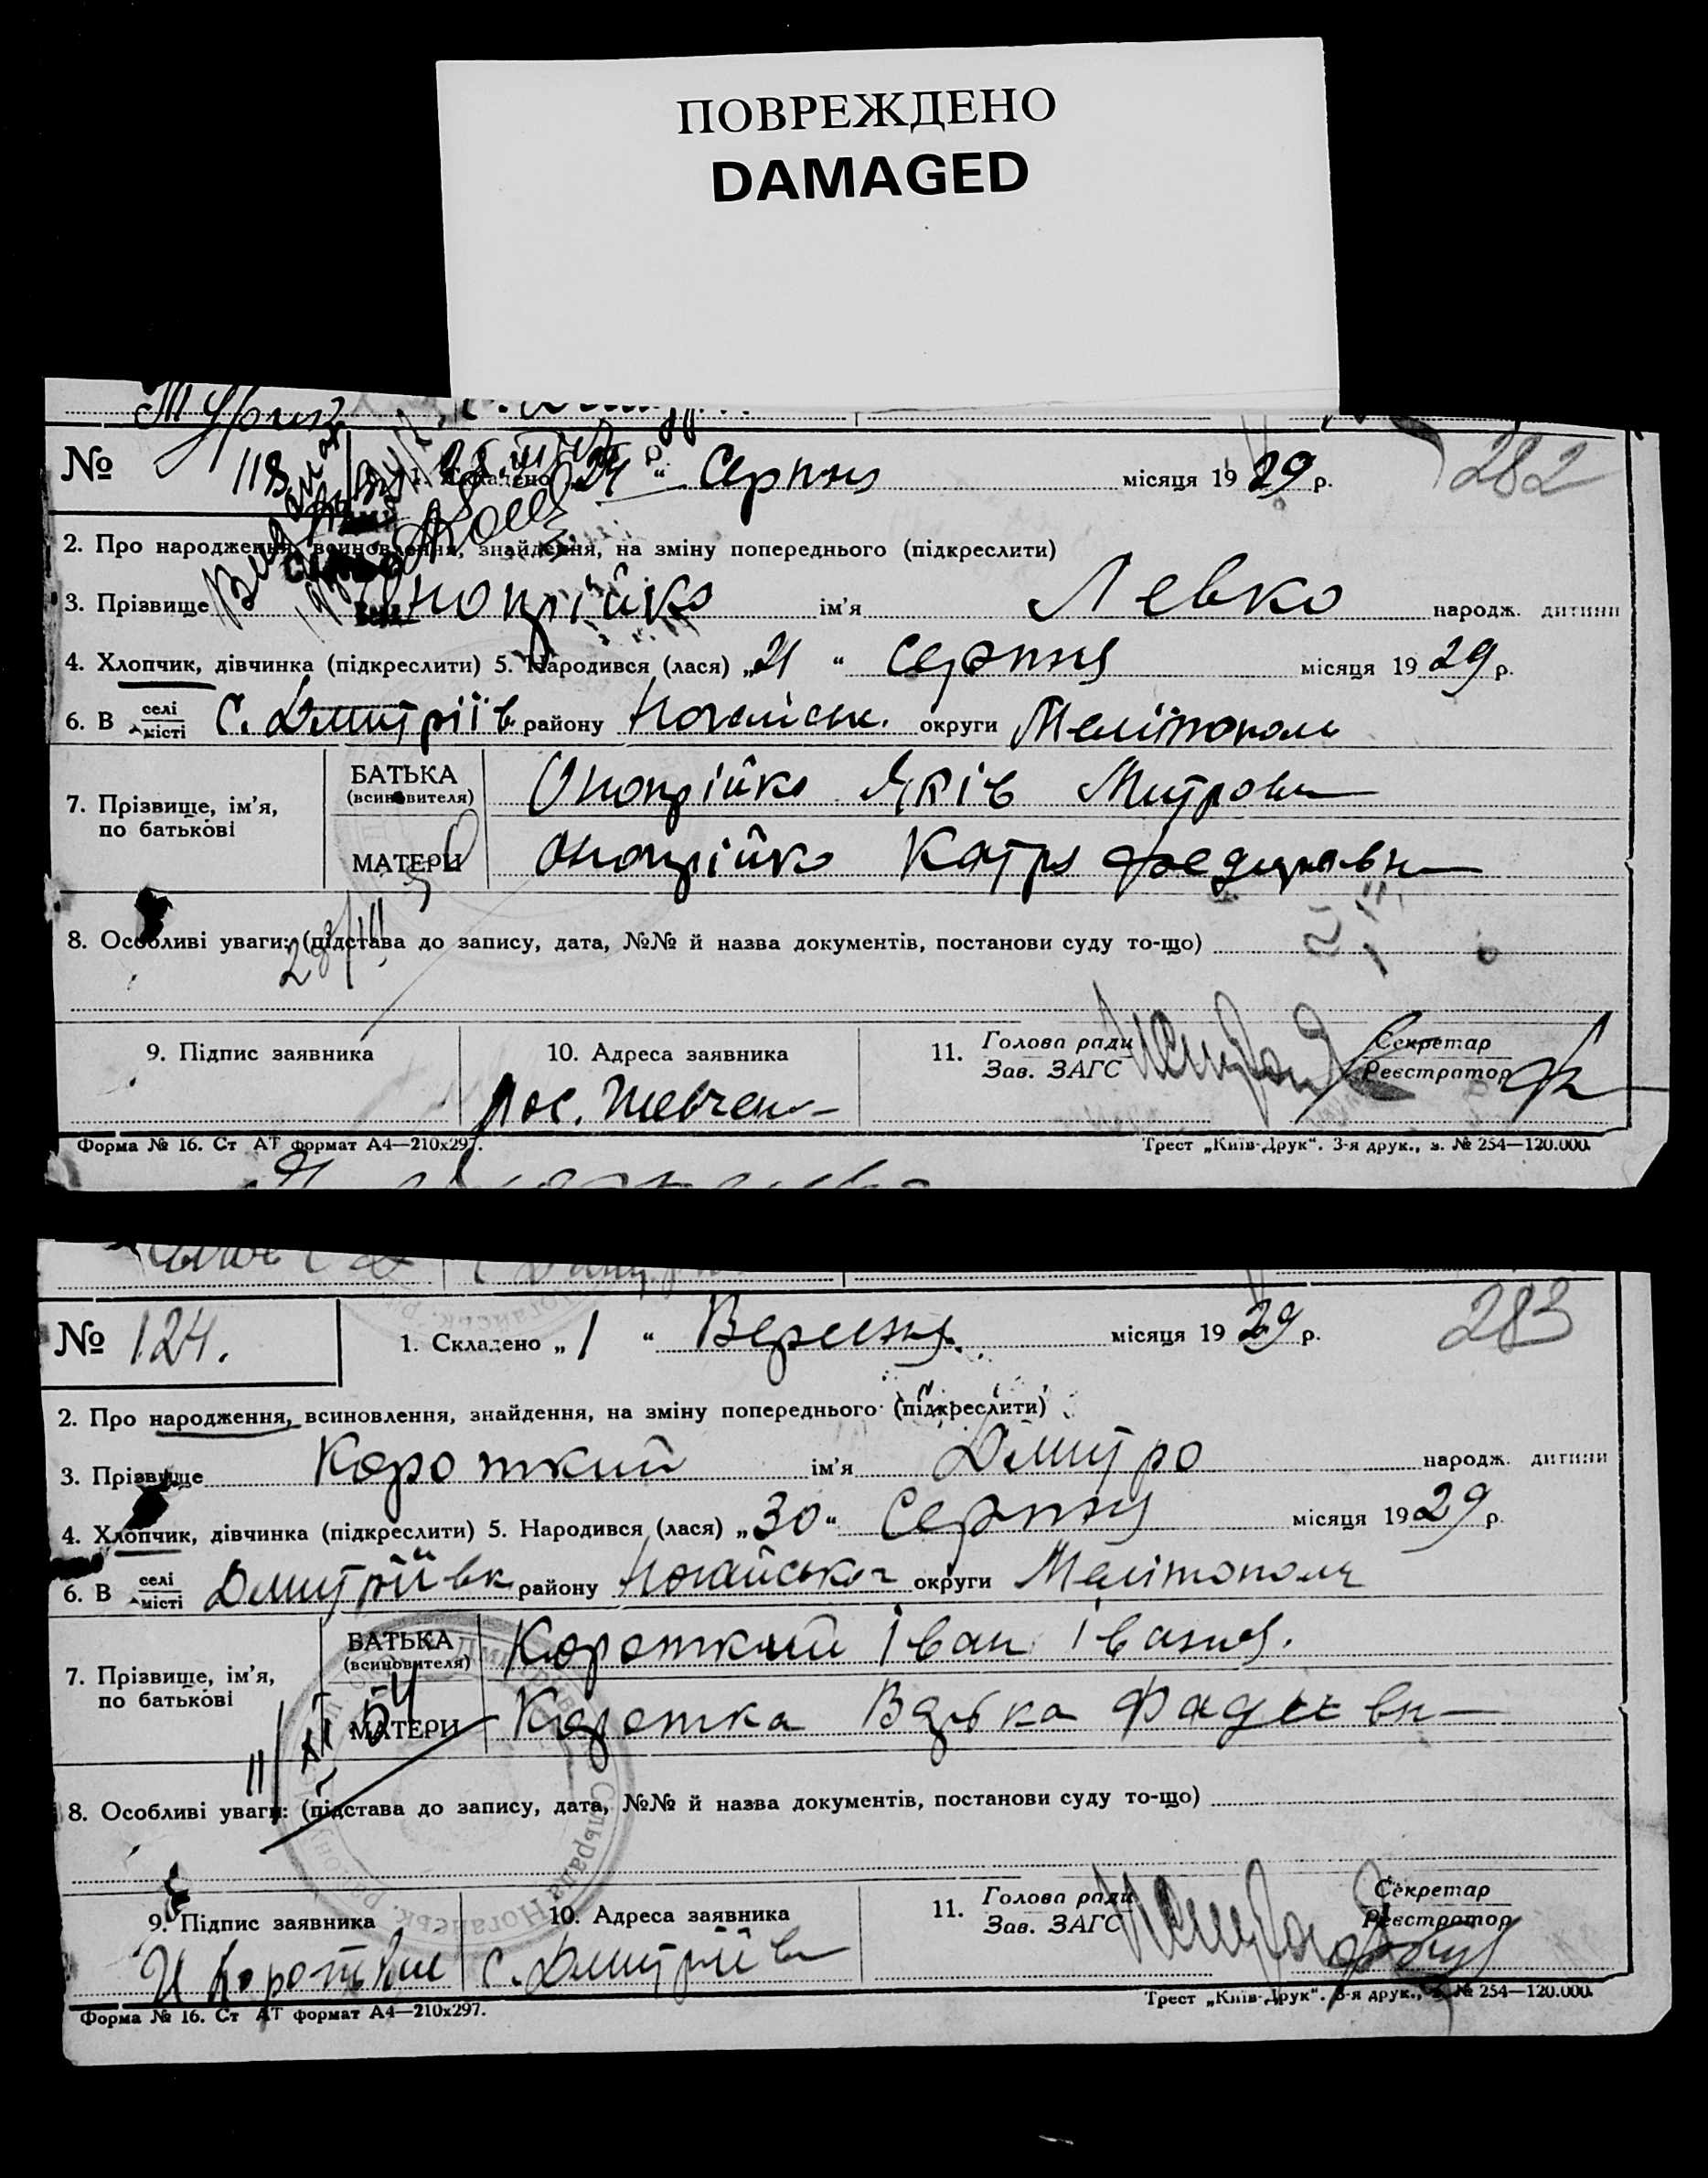 ПОВРЕЖДЕНО
DAMAGED
№ 118 1. Складено „24“ Серпня місяця 1929 р. 282
2. Про народження, всиновлення, знайдення, на зміну попереднього (підкреслити)
3. Прізвище Онопрійко ім’я Левко народж. дитини
4. Хлопчик, дівчинка (підкреслити) 5. Народився (лася) „21“ Серпня місяця 1929 р.
6. В селі місті С. Дмитріїв. району Ногайськ. округи Мелітополь
7. Прізвище, ім’я, по батькові
БАТЬКА (всиновителя) Онопрійко Яків Митров
МАТЕРИ Онопрійко Катря
8. Особливі уваги: (підстава до запису, дата, №№ й назва документів, постанови суду то-що)
28/III
9. Підпис заявника 10. Адреса заявника 11. Голова ради Зав. ЗАГС Секретар Реєстратор
пос. Шевчен
Форма № 16. Ст АТ формат А4—210х297. Трест „Київ-Друк“. 3-я друк., з. № 254—120.000.
№ 124. 1. Складено „1“ Вересня місяця 1929 р. 283
2. Про народження, всиновлення, знайдення, на зміну попереднього (підкреслити)
3. Прізвище Короткий ім’я Дмитро народж. дитини
4. Хлопчик, дівчинка (підкреслити) 5. Народився (лася) „30“ Серпня місяця 1929 р.
6. В селі місті Дмитріївк району Ногайськ округи Мелітополь
7. Прізвище, ім’я, по батькові
БАТЬКА (всиновителя) Короткий Іван
МАТЕРИ Коротка Фадеевн
11/XII 54
8. Особливі уваги: (підстава до запису, дата, №№ й назва документів, постанови суду то-що)
9. Підпис заявника 10. Адреса заявника 11. Голова ради Зав. ЗАГС Секретар Реєстратор
И Коротkий с. Дмитріїв
Форма № 16. Ст АТ формат А4—210х297. Трест „Київ-Друк“. 3-я друк., з. № 254—120.000.